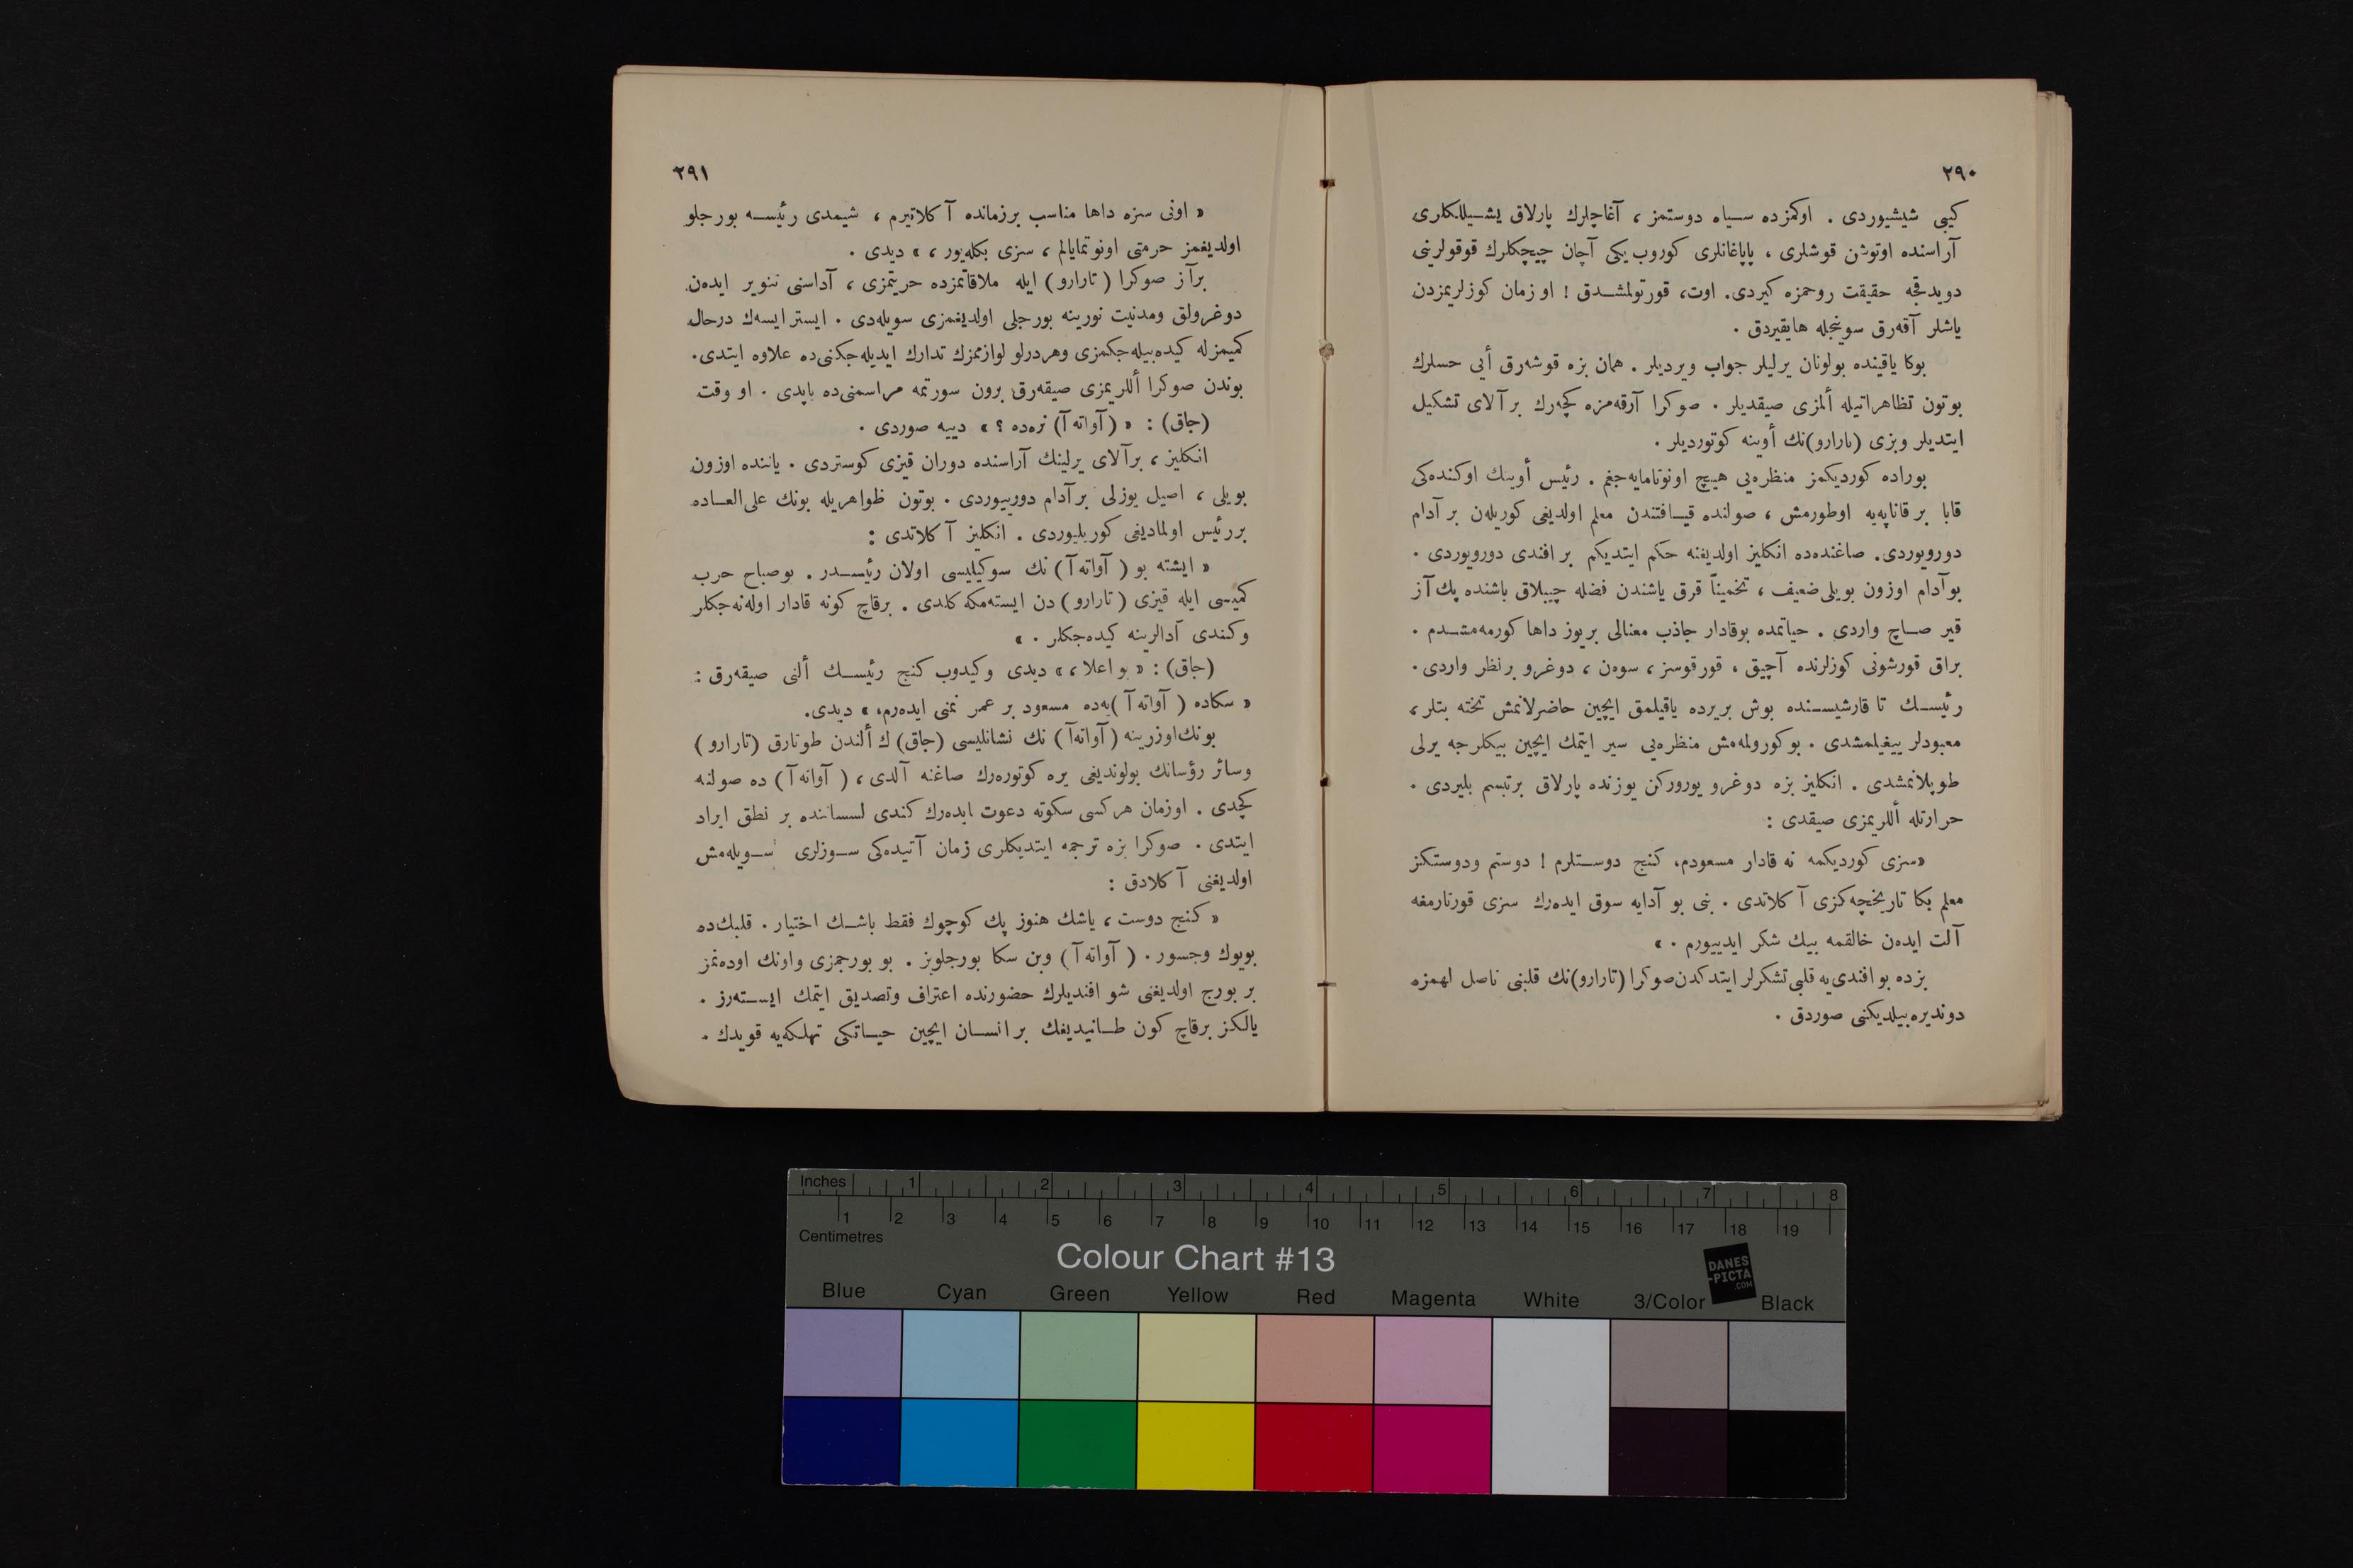 ٢٩٠
كيبی شيشيوردی . اوكمزده سياه دوستمز ، آغاچلرك پارلاق يشيللكلری
آراسنده اوتوشن قوشلری ، پاپاغانلری كوروب يكی آچان چيچكلرك قوقولرينی
دويدقجه حقيقت روحمزه كيردی. اوت، قورتولمشدق ! او زمان كوزلريمزدن
ياشلر آقه‌رق سوينجله هايقيردق .
بوكا ياقينده بولونان يرليلر جواب ويرديلر . همان بزه قوشه‌رق أيی حسلرك
بوتون تظاهراتيله ألمزی صيقديلر . صوكرا آرقه‌مزه كچه‌رك بر آلای تشكيل
ايتديلر وبزی (تارارو)نك أوينه كوتورديلر .
بوراده كورديكمز منظره‌يی هيچ اونوتامايه‌جغم . رئيس أوينك اوكنده‌كی
قابا بر قاناپه‌يه اوطورمش ، صولنده قيافتندن معلم اولديغی كوريله‌ن بر آدام
دورويوردی. صاغنده‌ده انكليز اولديغنه حكم ايتديكم بر افندی دورويوردی .
بو آدام اوزون بويلی ضعيف ، تخميناً قرق ياشندن فضله چيبلاق باشنده پك آز
قير صاچ واردی . حياتمده بوقادار جاذب معنالی بر يوز داها كورمه‌مشدم .
براق قورشونی كوزلرنده آچيق ، قورقوسز ، سوه‌ن ، دوغرو بر نظر واردی .
رئيسك تا قارشيسنده بوش بر يرده ياقيلمق ايچين حاضرلانمش تخته بتلر ،
معبودلر ييغيلمشدی . بو كورولمه‌مش منظره‌يی سير ايتمك ايچين بيكلرجه يرلی
طوپلانمشدی . انكليز بزه دوغرو يورورکن يوزنده پارلاق بر تبسم بليردی .
حرارتله أللريمزی صيقدی :
«سزی كورديكمه نه قادار مسعودم، كنج دوستلرم ! دوستم ودوستكز
معلم بكا تاريخچه‌كزی آكلاتدی . بنی بو آدايه سوق ايده‌رك سزی قورتارمغه
آلت ايده‌ن خالقمه بيك شكر ايدييورم . »
بزده بو افندی‌يه قلبی تشكرلر ايتدكدن صوكرا (تارارو)نك قلبنی ناصل لهمزه
دونديره‌بيلديكنی صوردق .
٢٩١
« اونی سزه داها مناسب بر زمانده آكلاتيرم ، شيمدی رئيسه بورجلو
اولديغمز حرمتی اونوتمايالم ، سزی بكله‌يور ، » ديدی .
برآز صوكرا (تارارو) ايله ملاقاتمزده حريتمزی ، آداسنی تنوير ايده‌ن
دوغرولق ومدنيت نورينه بورجلی اولديغمزی سويله‌دی . ايستر ايسه‌ك درحال
كميمزله كيده‌بيله‌جكمزی وهر درلو لوازممزك تدارك ايديله‌جكنی‌ده علاوه ايتدی.
بوندن صوكرا أللريمزی صيقه‌رق برون سورتمه مراسمنی‌ده ياپدی . او وقت
(جاق) : « (آواته‌آ) نره‌ده ؟ » دييه صوردی .
انكليز ، برآلای يرلينك آراسنده دوران قيزی كوستردی . ياننده اوزون
بويلی ، اصيل يوزلی بر آدام دورييوردی . بوتون ظواهريله بونك علی‌العاده
بر رئيس اولماديغی كوريليوردی . انكليز آكلاتدی :
« ايشته بو (آواته‌آ) نك سوكيليسی اولان رئيسدر . بو صباح حرب
كميسی ايله قيزی (تارارو) دن ايسته‌مكه كلدی . برقاچ كونه قادار اوله‌نه‌جكلر
وكندی آدالرينه كيده‌جكلر . »
(جاق) : « بو اعلا ، » ديدی وكيدوب كنج رئيسك ألنی صيقه‌رق :
« سكاده (آواته‌آ)يه‌ده مسعود بر عمر تمنی ايده‌رم، » ديدی.
بونك اوزرينه (آواته‌آ) نك نشانليسی (جاق) ك ألندن طوتارق (تارارو)
وسائر رؤسانك بولونديغی يره كوتوره‌رك صاغنه آلدی ، (آواته‌آ) ده صولنه
كچدی . اوزمان هركسی سكوته دعوت ايده‌رك كندی لسساننده بر نطق ايراد
ايتدی . صوكرا بزه ترجمه ايتديكلری زمان آتيده‌كی سوزلری سويله‌مش
اولديغنی آكلادق :
« كنج دوست ، ياشك هنوز پك كوچوك فقط باشك اختيار . قلبك‌ده
بويوك وجسور . (آواته‌آ) وبن سكا بورجلويز . بو بورجمزی واونك اوده‌نمز
بر بورج اولديغنی شو افنديلرك حضورنده اعتراف وتصديق ايتمك ايسته‌رز .
يالكز برقاچ كون طانيديغك بر انسان ايچين حياتكی تهلكه‌يه قويدك .
Inches 1 2 3 4 5 6 7 8
1 2 3 4 5 6 7 8 9 10 11 12 13 14 15 16 17 18 19
Centimetres
Colour Chart #13
DANES
-PICTA
.COM
Blue Cyan Green Yellow Red Magenta White 3/Color Black